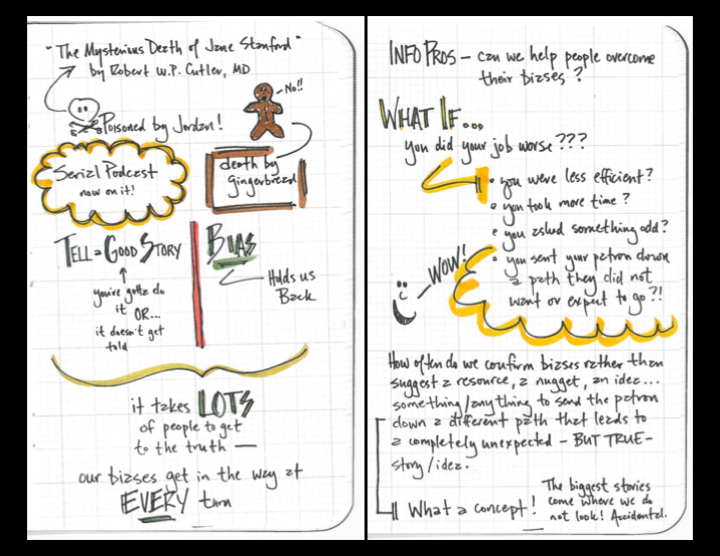 "The Mysterious Death of Jane Stanford"
by Robert W.P. Cutler, MD
No!!
Poisoned by Jordan!
Serial Podcast
now on it!
death by
gingerbread
TELL a GOOD STORY
you've gotta do
it OR...
it doesn't get
told
BIAS
Holds us
Back
it takes LOTS
of people to get
to the truth —
our biases get in the way at
EVERY turn
INFO PROS – can we help people overcome
their biases?
WHAT IF...
you did your job worse???
• you were less efficient?
• you took more time?
• you asked something odd?
• you sent your patron down
a path they did not
want or expect to go?!
WOW!
How often do we confirm biases rather than
suggest a resource, a nugget, an idea...
something/anything to send the patron
down a different path that leads to
a completely unexpected – BUT TRUE –
story/idea.
What a concept!
The biggest stories
come where we do
not look! Accidental.